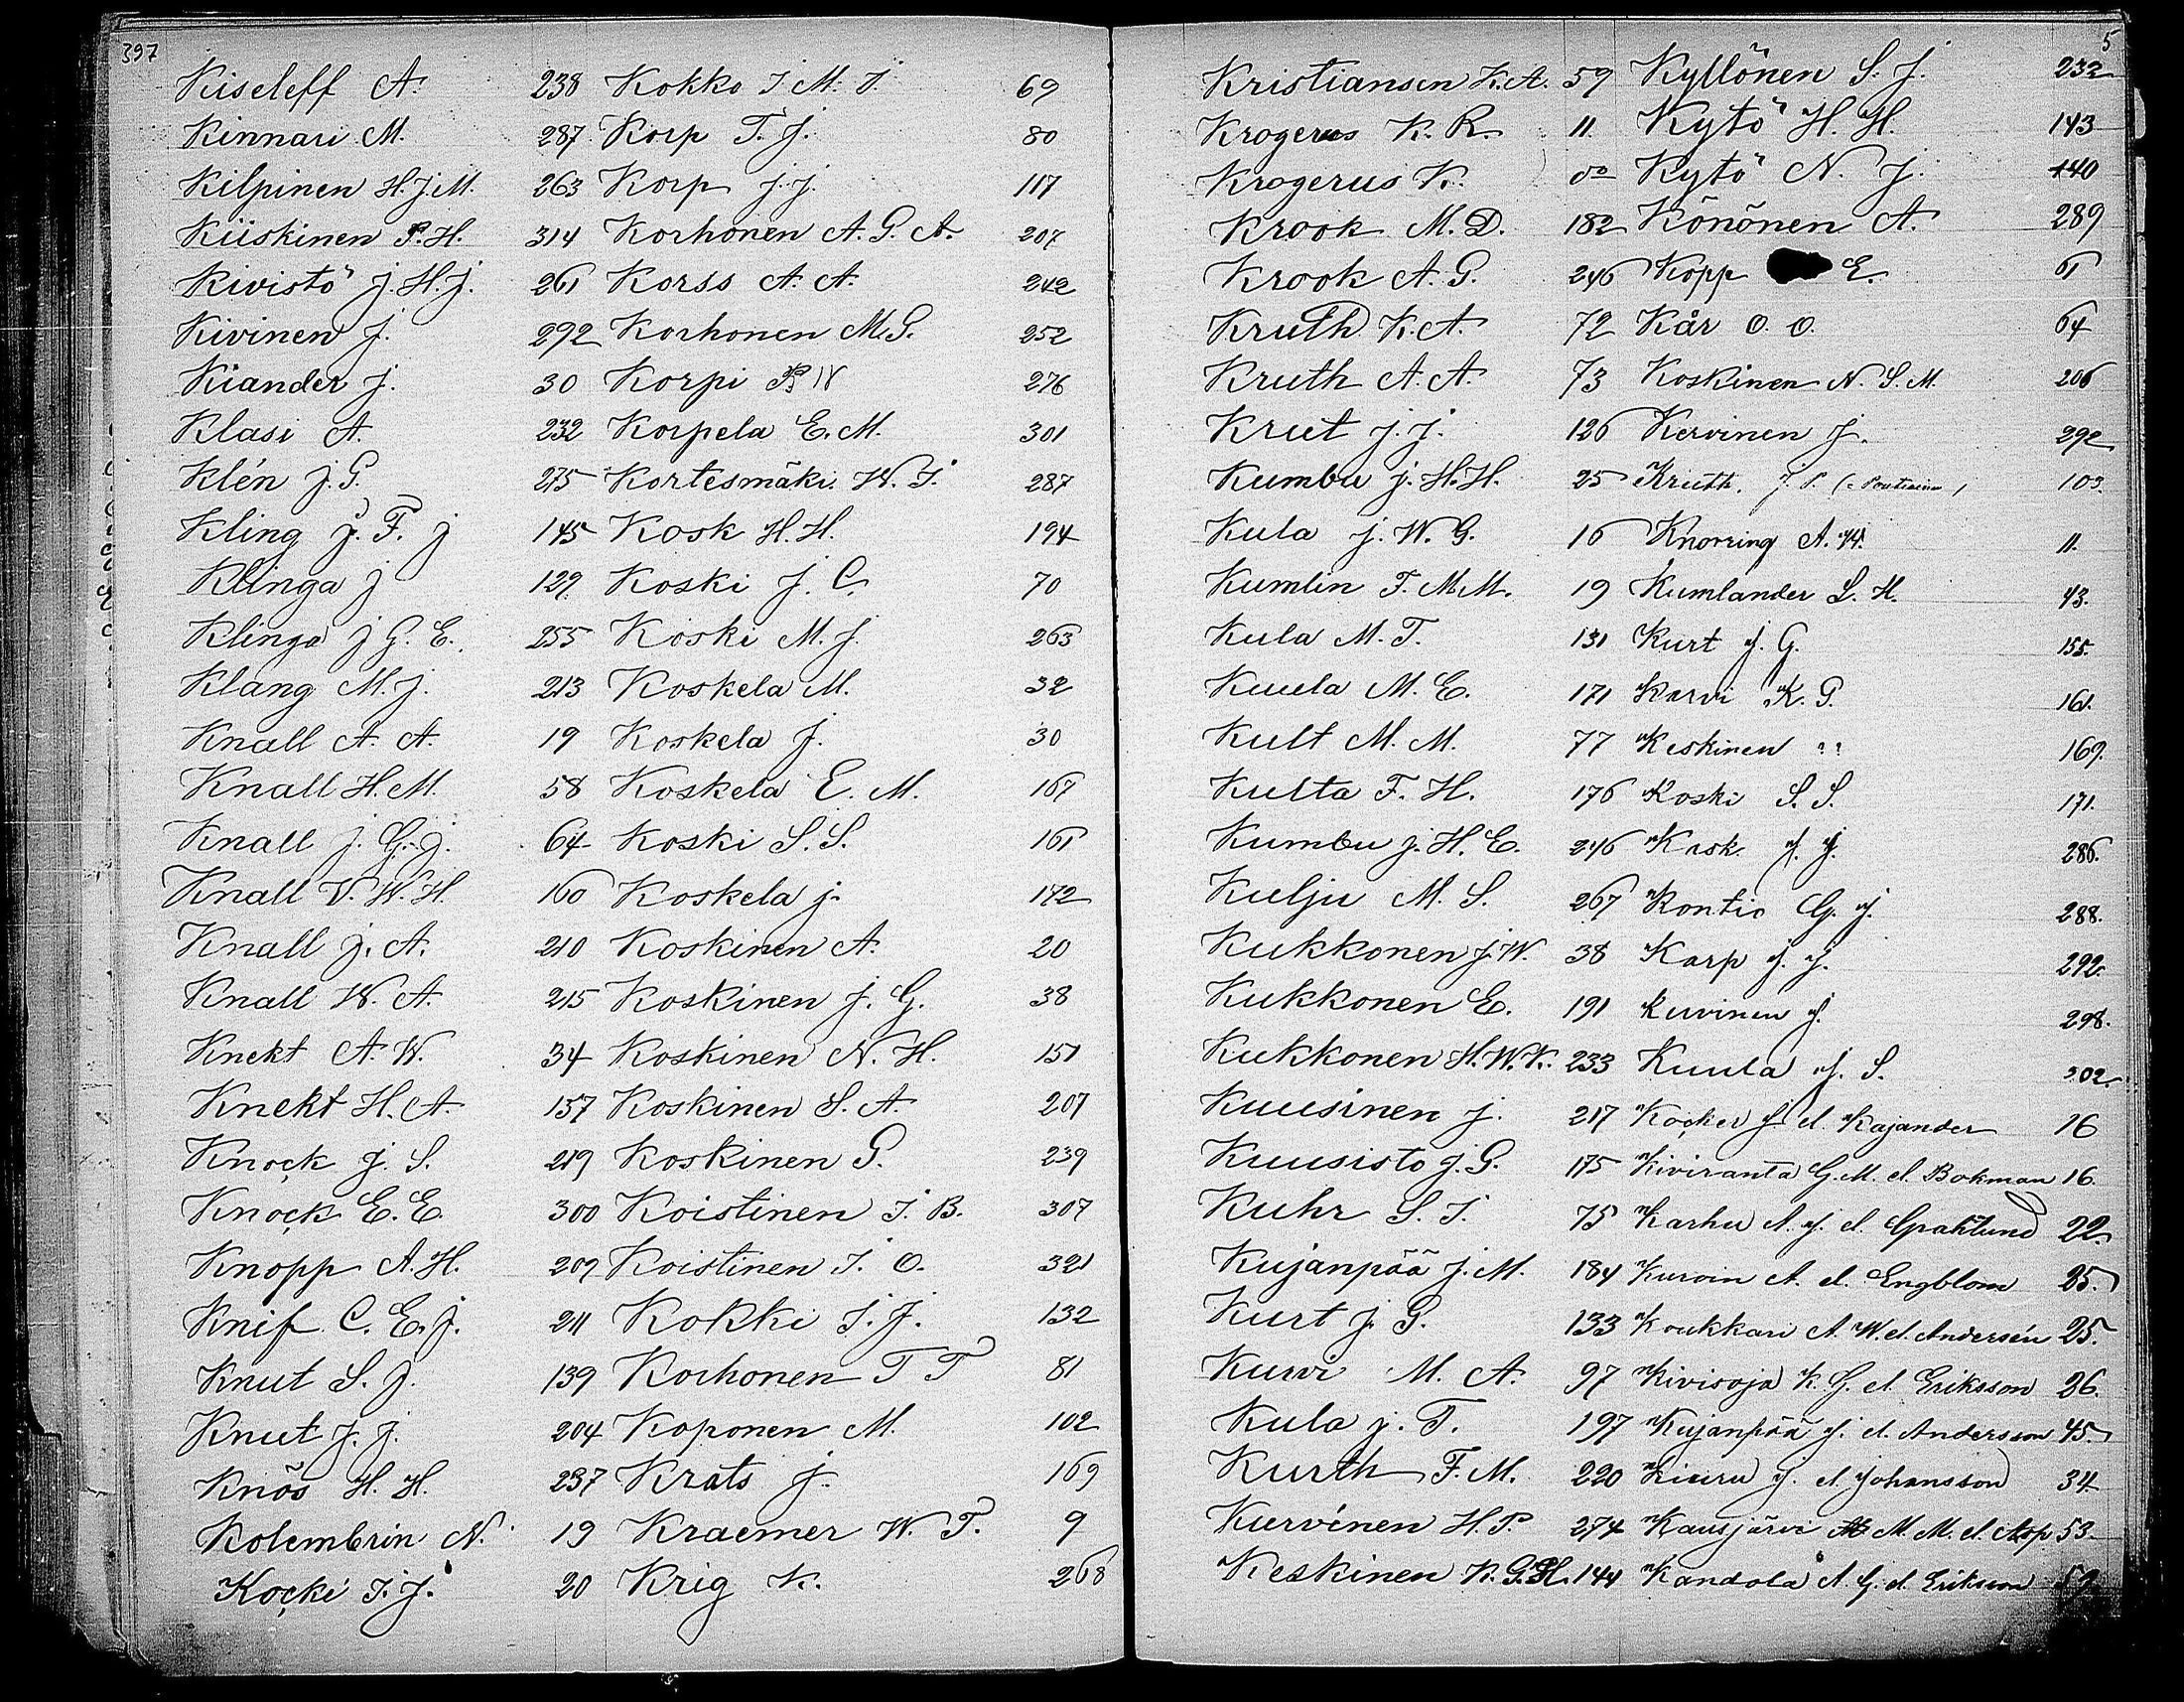 397
Kiseleff A. 238
Kinnari M. 287
Kilpinen H.J.M. 263
Kiiskinen P.H. 314
Kivistö J.H.J. 261
Kivinen J. 292
Kiander J. 30
Klasi A. 232
Klén J.G. 275
Kling J.F.J 145
Klinga J 129
Klinga J G.E. 255
Klang M.J. 213
Knall A.A. 19
Knall H.M. 58
Knall J.G.J. 64
Knall V.W.H. 160
Knall J.A. 210
Knall W.A. 215
Knekt A.W. 34
Knekt H.A. 157
Knock J.S. 219
Knock E.E. 300
Knopp A.H. 209
Knif C.E.J. 211
Knut S.J. 139
Knut J.J. 204
Knös H.H. 237
Kolembrin N. 19
Kocki I.J. 20
Kokko I.M.I. 69
Korp T.J. 80
Korp J.J. 117
Korhonen A.G.A. 207
Korss A.A. 242
Korhonen M.G. 252
Korpi P. W 276
Korpela E.M. 301
Kortesmäki W.I. 287
Kosk H.H. 194
Koski J.C. 70
Koski M.J. 263
Koskela M. 32
Koskela J. 30
Koskela E.M. 167
Koski S.S. 161
Koskela J. 172
Koskinen A. 20
Koskinen J.G. 38
Koskinen N.H. 151
Koskinen S.A. 207
Koskinen G. 239
Koistinen I.B. 307
Koistinen I.O. 321
Kokki I.J. 132
Korhonen T T 81
Koponen M. 102
Krats J. 169
Kraemer W.T. 9
Krig K. 268
5
Kristiansen K.A. 59
Krogerus K.R. 11
Krogerus K. do
Krook M.D. 182
Krook A.G. 246
Kruth K.A. 72
Kruth A.A. 73
Krut J.J. 126
Kumbu J.H.H. 25
Kula J.W.G. 16
Kumlin F.M.M. 19
Kula M.T. 131
Kuula M.E. 171
Kult M.M. 77
Kulta F.H. 176
Kumbu J.H.E. 246
Kulju M.S. 267
Kukkonen J.W. 38
Kukkonen E. 191
Kukkonen H.W.K. 233
Kuusinen J. 217
Kuusisto J.G. 175
Kuhr S.I. 75
Kujanpää J.M. 184
Kurt J.G. 133
Kurvi M.A. 97
Kula J.T. 197
Kurth F.M. 220
Kurvinen H.P. 274
Keskinen K.G.H. 144
Kyllönen S.J. 232
Kytö H.H. 143
Kytö N.J. 140
Könönen A. 289
Kopp E. 61
Kår O.O. 64
Koskinen N.S.M. 206
Kervinen J. 292
Kruth. J.P. 103.
Knorring A.M. 11.
Kumlander L.H. 43.
Kurt J.G. 155.
Karvi K.G. 161.
Keskinen " 169.
Koski S.S. 171.
Kask J.J. 286.
Kontio G.J. 288.
Karp J.J. 292.
Kuvinen J. 298.
Kuula J.S. 302.
Kocker J. el. Kajander 16
Kiviranta G.M. el. Bokman 16.
Karhu A.J. el. 22.
Kurvin A. el. Engblom 25.
Koukkari A.W. el. Andersén 25.
Kivisoja K.G. el. Eriksson 26.
Kujanpää J. el. Andersson 45.
Kiuru J. el. Johansson 34
Kausjärvi M.M. el. Asp 53.
Kandola A.G. el. Eriksson